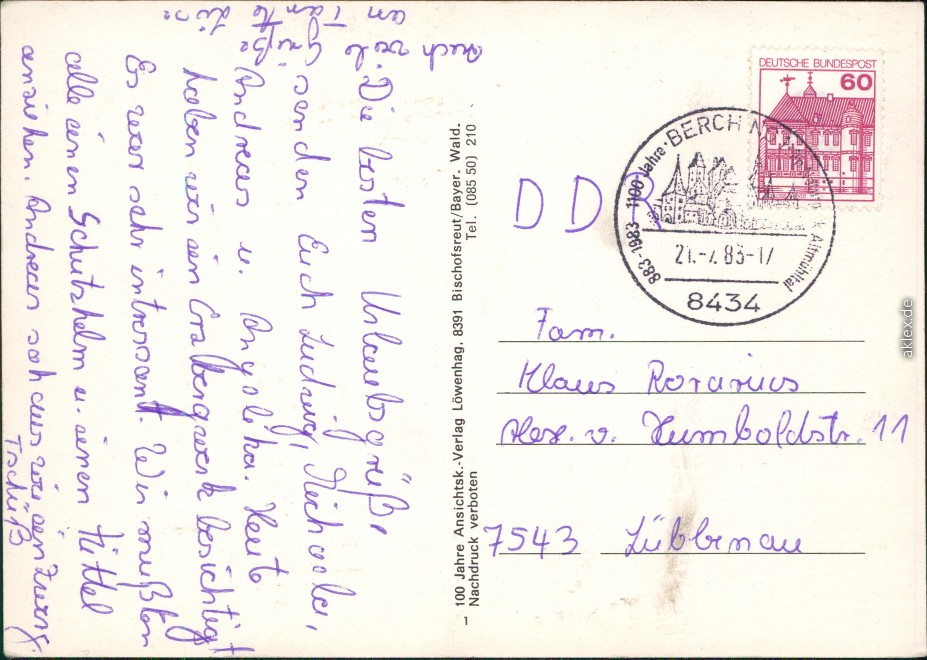 Die besten Urlaubsgrüße
senden Euch Ludwig, Michaela,
Andreas u. Angelika. Heute
haben wir ein Erzbergwerk besichtigt
Es war sehr intressant. Wir mußten
alle einen Schutzhelm u. einen Kittel
anziehen. Andreas sah aus wie ein Zwerg.
Tschüß
Auch viele
Grüße
an Tante
100 Jahre Ansichtsk.-Verlag Löwenhag, 8391 Bischofsreut/Bayer. Wald.
Nachdruck verboten Tel. (085 50) 210
1
DEUTSCHE BUNDESPOST
60
883-1983 · 1100 Jahre · BERCHING
Altmühltal
21.-7.83-17
8434
DDR
Fam.
Klaus Rorarius
Alex. v. Humboldtstr. 11
7543 Lübbenau
aklex.de